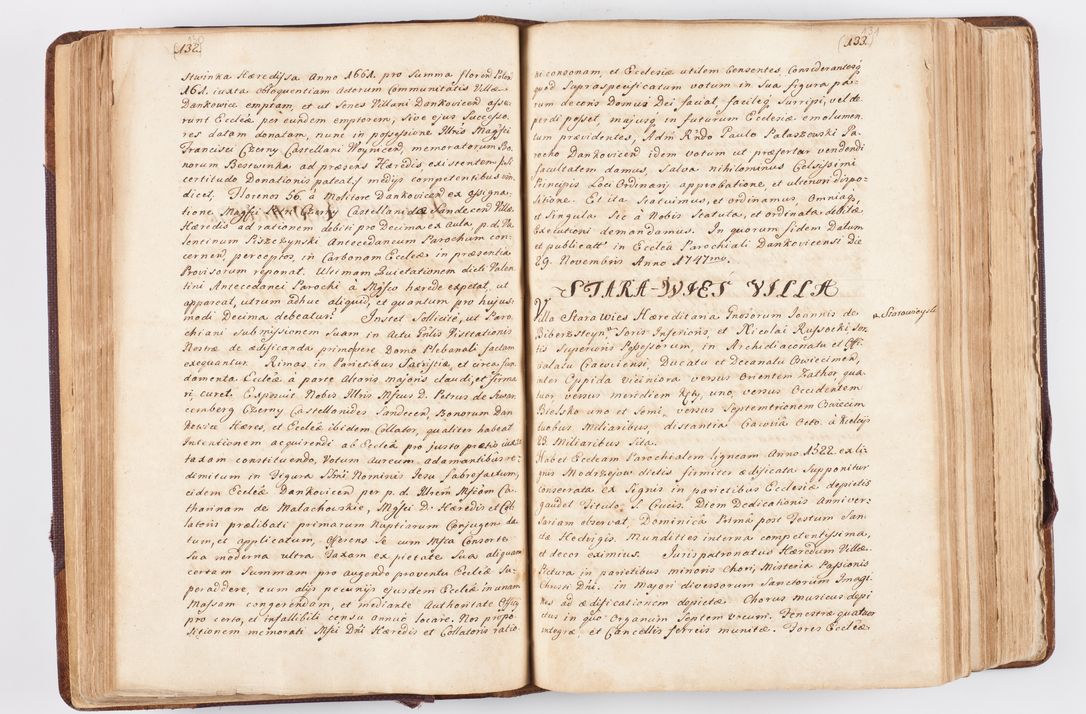 (132.
stwinka Hæredissa Anno 1661. pro Summa floren Polon
161. iuxta obloquentiam Actorum Communitatis Villæ
Dankowice emptam, et ut Senes Villani Dankovicen asse-
runt Eccleæ per eundem emptorem, sive ejus Successo-
res datam donatam, nunc in possessione Illris Magfci
Francisci Czerny Castellani Woynicen, memoratorum Bo-
norum Bestwinka ad præsens Hæredis existentem
certitudo Donationis pateat, medijs competentibus vin-
dicet. Florenos 56. à Molitore Dankovicen ex assigna-
tione Magfci Czerny Castellanidæ Sandecen Villæ
Hæredis ad rationem debiti pro Decima ex aula p. d. Va
lencinum Piszczynski Antecedaneum Parochum con-
cernen, perceptos, in Carbonam Eccleæ in præsentia
Provisorum reponat. Ultimam Quietationem dicti Valen
tini Antecedanei Parochi à Mgfco hærede expetat, ut
appareat, utrum adhuc aliquid, et quantum pro hujus-
modi Decima debeatur. Instet Sollicite, ut Paro-
chiani submissionem Suam in Actu Gnlis Visitationis
Nostræ de ædificanda Domo Plebanali factam
exequantur. Rimas in Parietibus Sacristiæ, et circa fun-
damenta Eccleæ à parte Altaris majoris claudi, et firma
ri, curet. Exposuit Nobis Illris Mfcus D. Petrus de Swan
cemberg Czerny Castellanides Sandecen, Bonorum Dan
kowice Hæres, et Eccleæ ibidem Collator, qualiter habeat
Intentionem acquirendi ab Eccleâ pro justo prætio iuxta
taxam constituendo, Votum aureum adamantibus re-
dimitum in Figura Ssmi Nominis Iesu fabrefactum,
eidem Eccleæ Dankovicen per p. d. Illrem Mfcam Ca-
tharinam de Malachowskie, Mgfci D. Hæredis et Col-
latoris prælibati primarum Nuptiarum Conjugem da-
tum, et applicatum, offerens Se cum Mfca Consorte
Sua moderna ultra taxam ex pietate Sua aliquam
certam Summam pro augendo proventu Eccleæ Su-
peraddere, cum alijs pecunijs ejusdem Eccleæ in unam
Massam congerendam, et mediante Authoritate Officij
pro certo, et infallibili censu annuo locare. Nos propo-
sitionem memorati Mfci Dni Hæredis et Collatoris ratio-
(133.
ni consonam, et Ecclesiæ utilem Censentes, Considerantesq
quod Supraspecificatum votum in Sua figura pa-
rum decoris Domus Dei facial, facileq Surripi, vel de
perdi posset, majusq in futurum Ecclesiæ emolumen
tum prævidentes, Adm Rndo Paulo Palaszowski Pa
rocho Dankovicen idem votum ut præfertur vendendi
facultatem damus, Salva nihilominus Celsissimi
Principis Loci Ordinarij approbatione, et ulteriori dispo-
sitione. Et ita Statuimus, et ordinamus, Omniaq,
et Singula Sic à Nobis Statuta, et ordinata debitæ
Executioni demandamus. In quorum fidem Datum
et publicatt in Eccleâ Parochiali Dankovicensi Die
29. Novembris Anno 1747mo.
STARA-WIEŚ VILLA
Villa Stara Wies Hæreditaria Gnosorum Ioannis de
Biberszteyn Sortis Inferioris, et Nicolai Russocki Sor-
tis Superioris Possessorum, in Archidiaconatu et Offi-
cialatu Cracoviensi, Ducatu et Decanatu Oswiecimen,
inter Oppida viciniora versus Orientem Zathor qua-
tuor, versus meridiem Kęty, uno, versus Occidentem
Bielsko uno et Semi, versus Septemtrionem Oswiecim
duobus Miliaribus, distantia Cracoviâ Octo. à Kielcijs
23. Miliaribus Sita.
Habet Eccleam Parochialem ligneam Anno 1522. ex lig
nis Modrzejow dictis firmiter ædificata Supponitur
consecrata ex Signis in parietibus Ecclesiæ depictis
gaudet Titulo S. Crucis. Diem Dedicationis Anniver-
sariam observat, Dominica Prima post Festum San-
ctæ Hedvigis. Mundities interna competentissima,
et decor eximius. Jurispatronatus Hæredum Villæ.
Pictura in parietibus minoris Chori, Misteria Passionis
Christi Dni. in Majori diversorum Sanctorum Imagi
nes ad ædificationem depictæ. Chorus musicus depi
ctus in quo Organum Septem vocum. Fenestræ quatuor
integræ et Cancellis ferreis munitæ. Fores Eccleæ